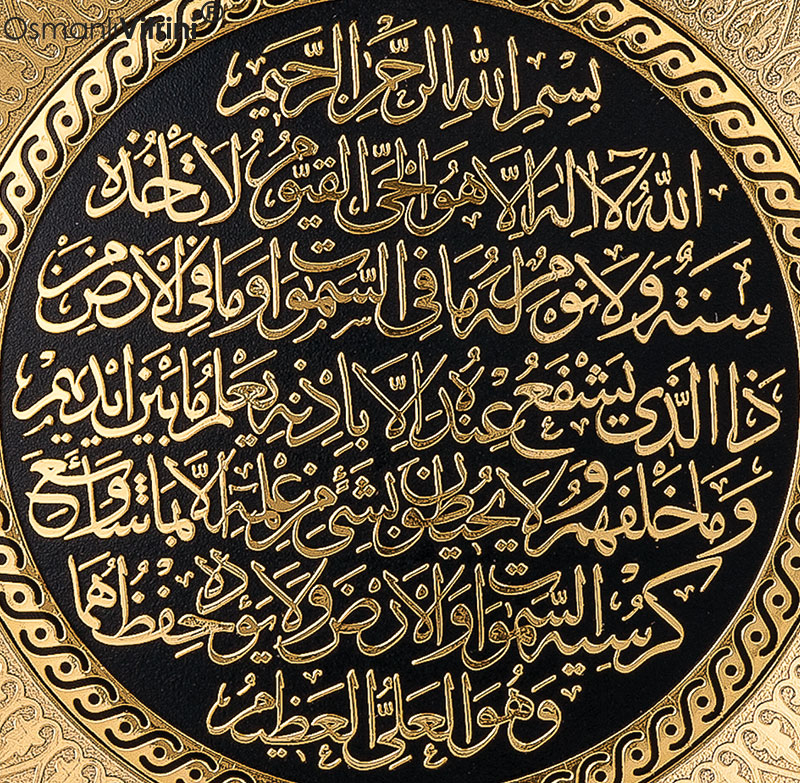 Osmanlı Vitrini®
بِسْمِ اللهِ الرَّحْمٰنِ الرَّحِيمِ
اَللهُ لَآ اِلٰهَ اِلَّا هُوَ الْحَيُّ الْقَيُّومُ لَا تَأْخُذُهُ
سِنَةٌ وَلَا نَوْمٌ لَهُ مَا فِي السَّمٰوَاتِ وَمَا فِي الْاَرْضِ مَنْ
ذَا الَّذِي يَشْفَعُ عِنْدَهُ اِلَّا بِاِذْنِهِ يَعْلَمُ مَا بَيْنَ اَيْدِيهِمْ
وَمَا خَلْفَهُمْ وَلَا يُحِيطُونَ بِشَيْءٍ مِنْ عِلْمِهِ اِلَّا بِمَا شَاءَ وَسِعَ
كُرْسِيُّهُ السَّمٰوَاتِ وَالْاَرْضَ وَلَا يَؤُدُهُ حِفْظُهُمَا
وَهُوَ الْعَلِيُّ الْعَظِيمُ